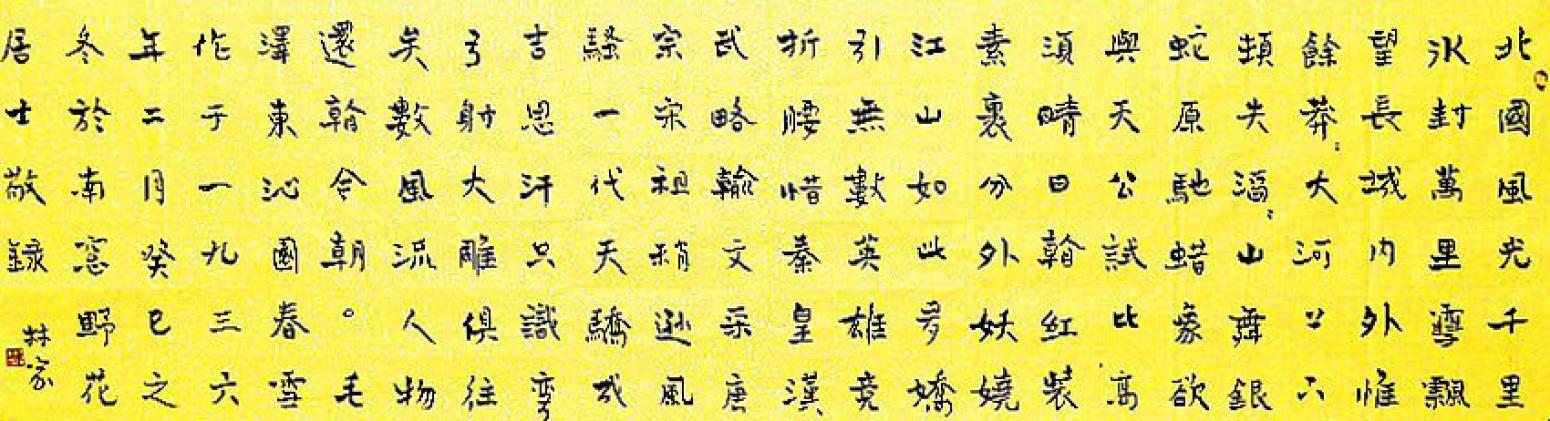 北國風光千里
冰封萬里雪飄
望長城內外惟
餘莽:大河上下
頓失滔:山舞銀
蛇原馳蜡象欲
與天公試比高
須晴日看紅裝
素裹分外妖嬈
江山如此多嬌
引無數英雄竞
折腰惜秦皇漢
武略輸文采唐
宗宋祖稍逊風
騷一代天驕成
吉思汗只識彎
弓射大雕俱往
矣數風流人物
還看今朝。毛
澤東沁園春雪
作于一九三六
年二月癸巳之
冬於南窓野花
居士敬錄
林家